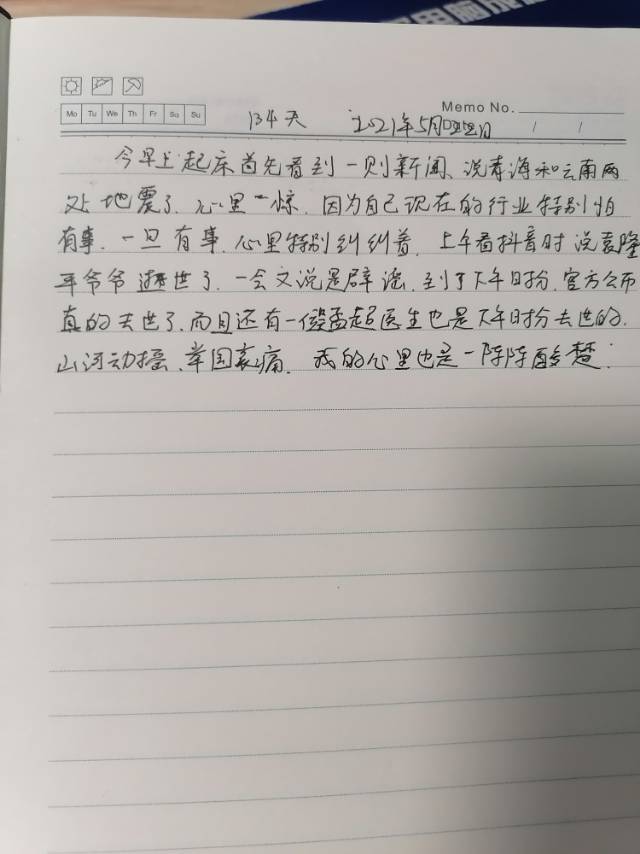 电脑
Memo No.
Mo Tu We Th Fr Sa Su
134天 2021年5月22日
今早上起床首先看到一则新闻、说青海和云南两
处地震了、心里一惊、因为自己现在的行业特别怕
有事、一旦有事、心里特别纠纠着、上午看抖音时说袁隆
平爷爷逝世了、一会又说是辟谣、到了下午时分、官方公布
真的去世了、而且还有一位孟超医生也是下午时分去世的、
山河动摇、举国哀痛、我的心里也是一阵阵酸楚.